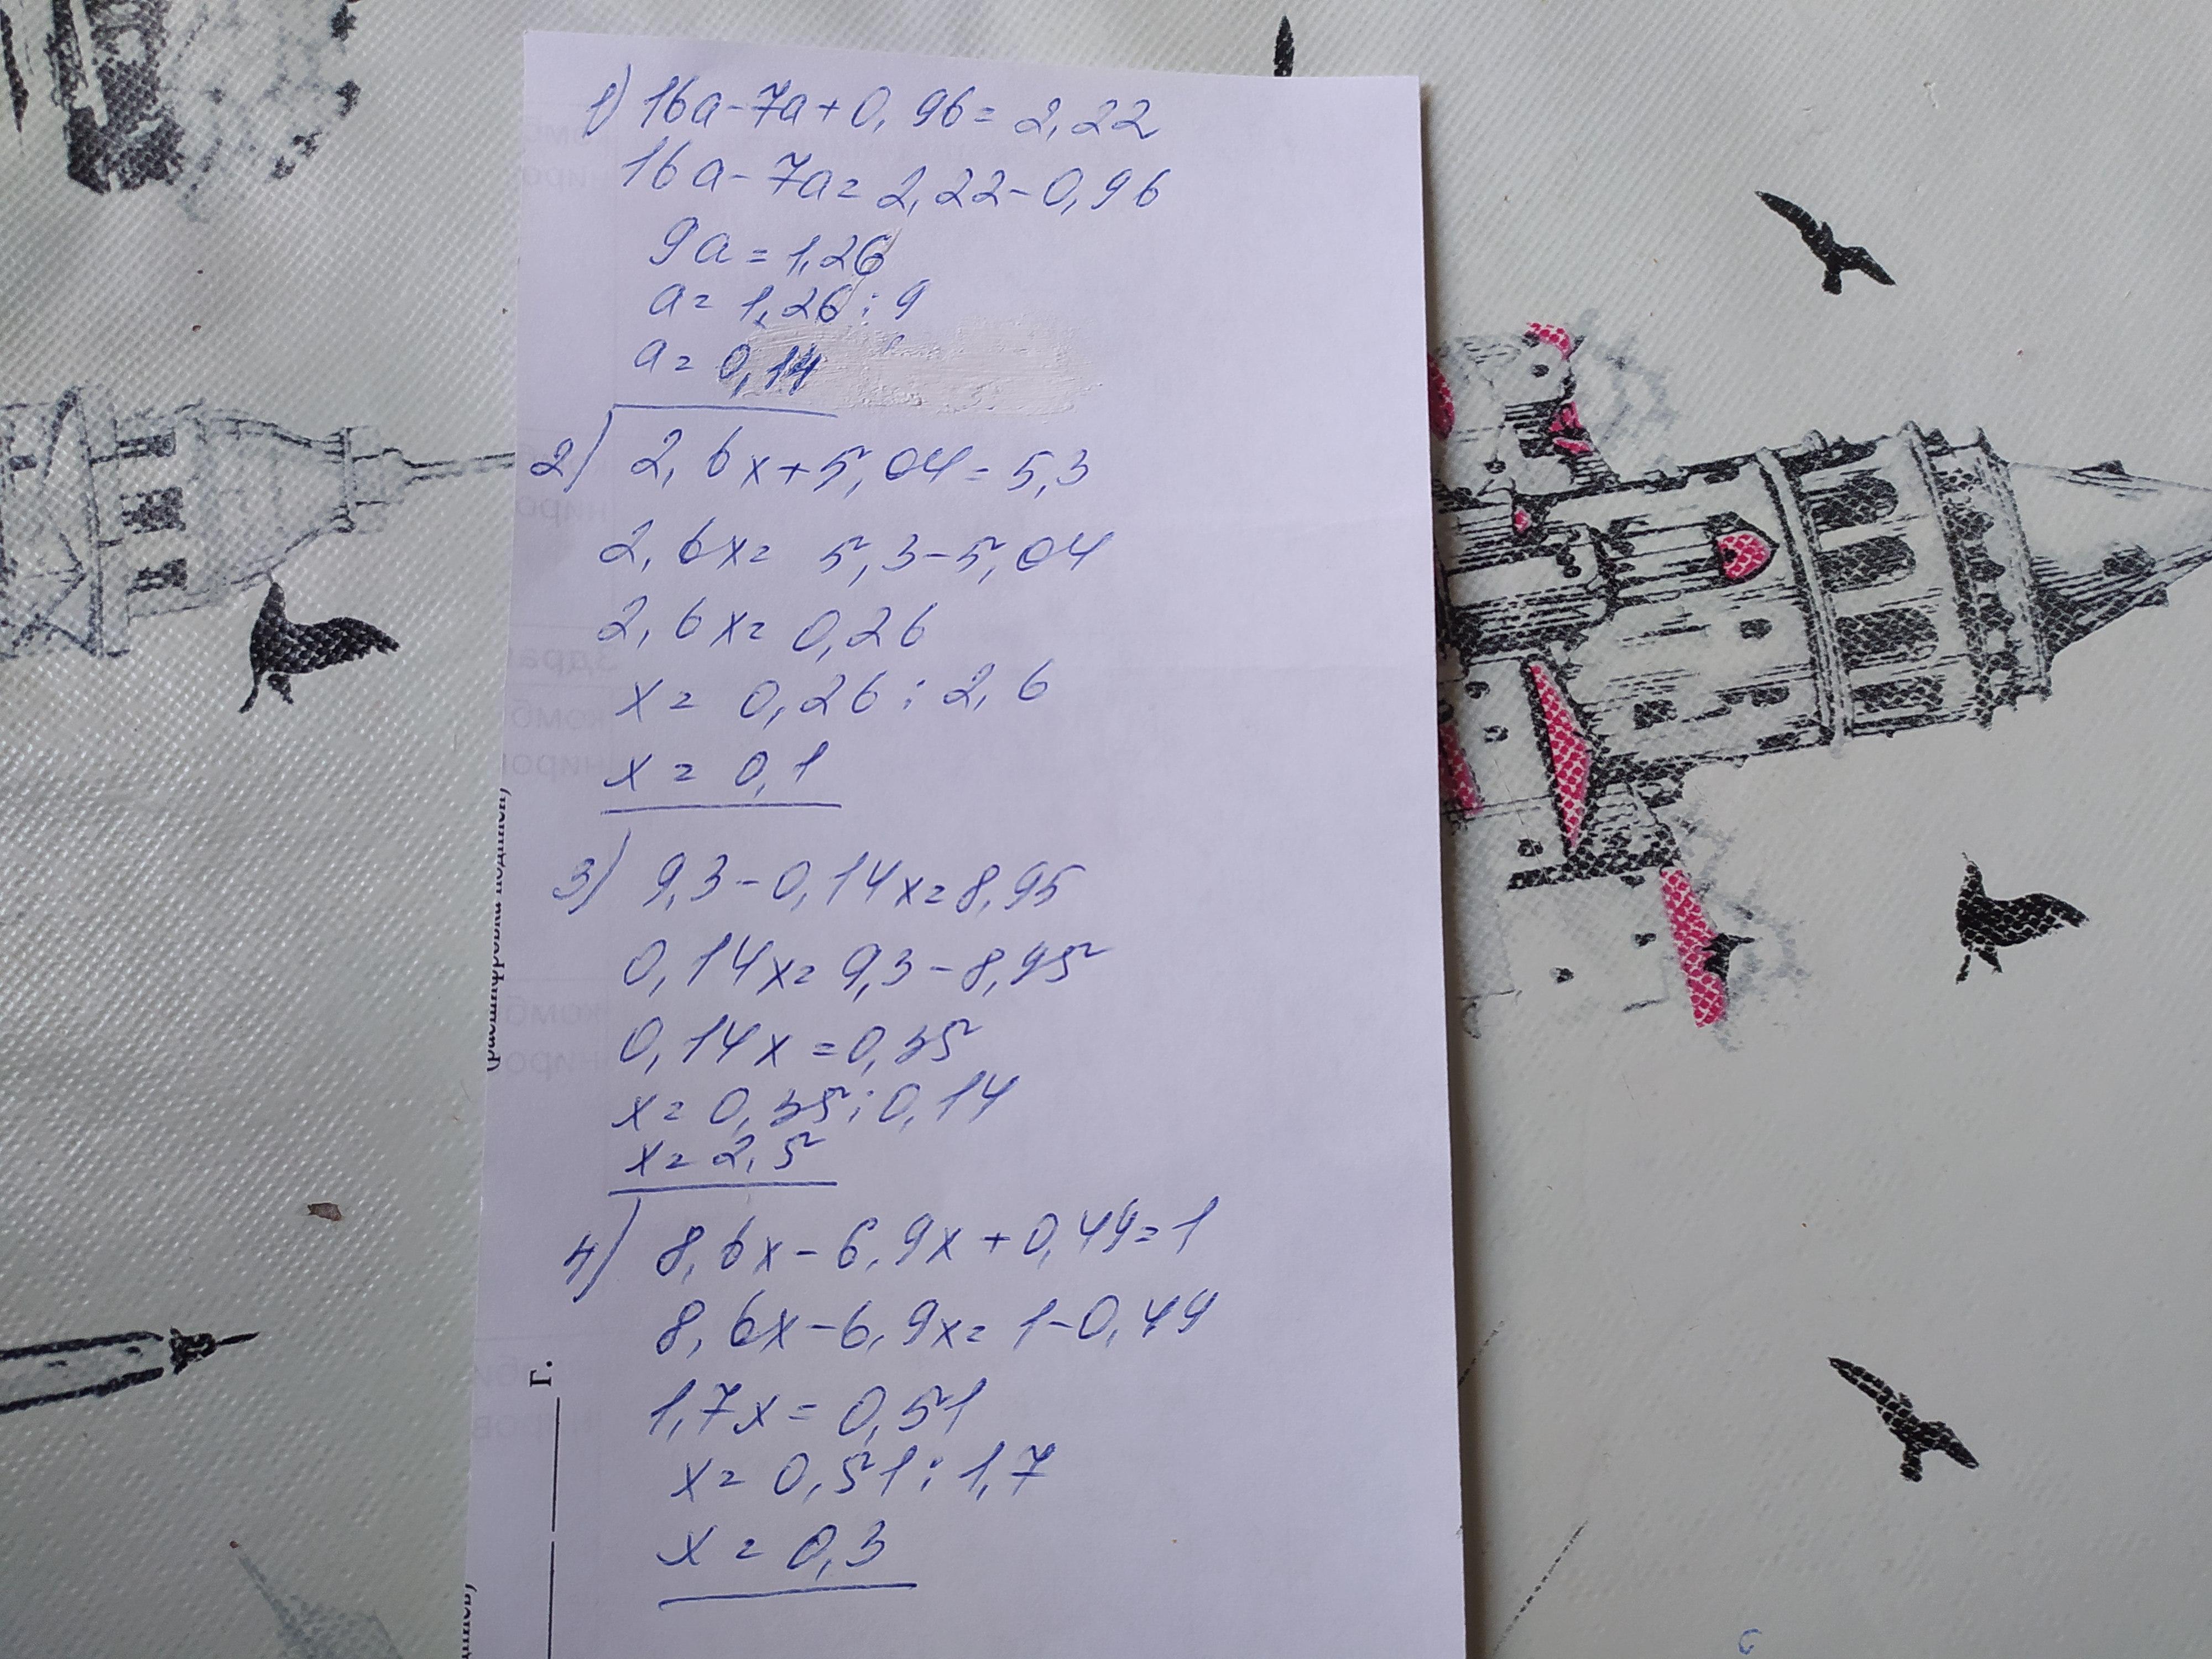 1) 16a-7a+0,96=2,22
16a-7a=2,22-0,96
9a=1,26
a=1,26:9
a=0,14
2) 2,6x+5,04=5,3
2,6x=5,3-5,04
2,6x=0,26
x=0,26:2,6
x=0,1
3) 9,3-0,14x=8,95
0,14x=9,3-8,95
0,14x=0,35
x=0,35:0,14
x=2,5
4) 8,6x-6,9x+0,49=1
8,6x-6,9x=1-0,49
1,7x=0,51
x=0,51:1,7
x=0,3
(расшифровка подписи)
г.